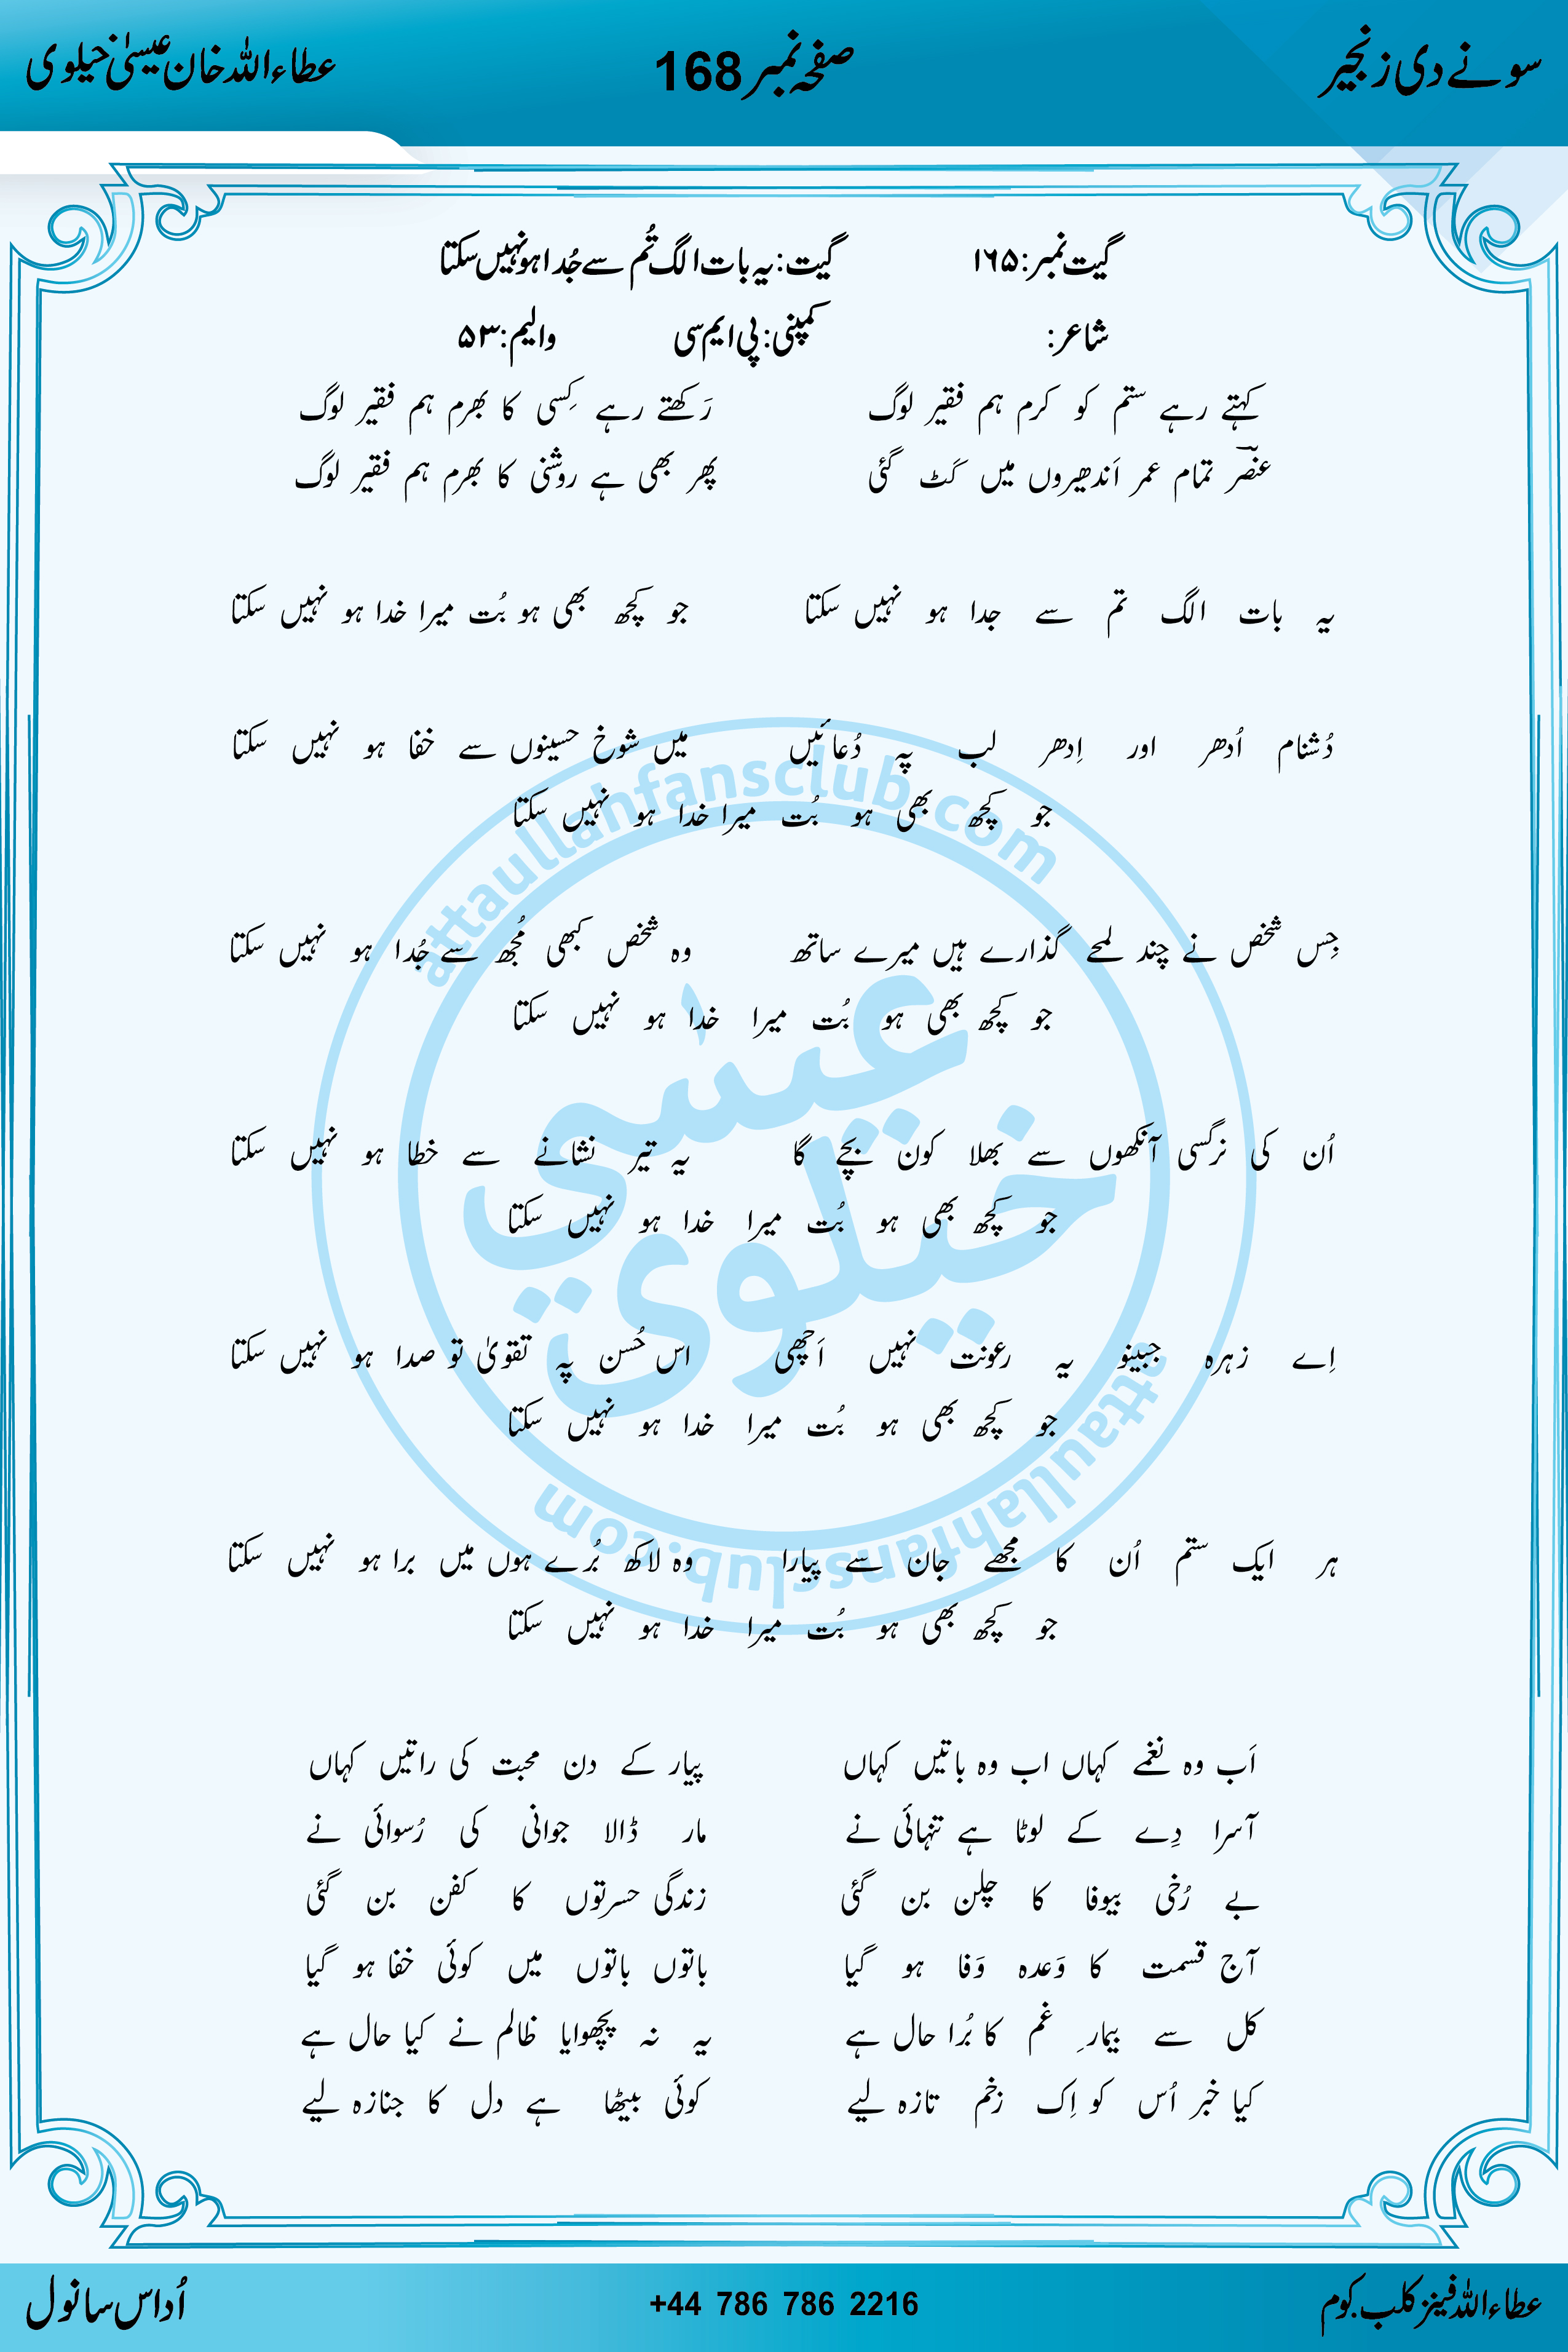 سونے دی زنجیر صفحہ نمبر 168 عطاءاللہ خان عیسیٰ خیلوی
گیت نمبر: ۱۶۵ گیت: یہ بات الگ تُم سے جُدا ہو نہیں سکتا
شاعر: کمپنی: پی ایم سی والیم: ۵۳
کہتے رہے ستم کو کرم ہم فقیر لوگ رَکھتے رہے کِسی کا بھرم ہم فقیر لوگ
عنصرؔ تمام عمر اَندھیروں میں کَٹ گئی پھر بھی ہے روشنی کا بھرم ہم فقیر لوگ
یہ بات الگ تم سے جدا ہو نہیں سکتا جو کچھ بھی ہو بُت میرا خدا ہو نہیں سکتا
دُشنام اُدھر اور اِدھر لب پہ دُعائیں میں شوخ حسینوں سے خفا ہو نہیں سکتا
جو کچھ بھی ہو بُت میرا خدا ہو نہیں سکتا
جِس شخص نے چند لمحے گذارے ہیں میرے ساتھ وہ شخص کبھی مُجھ سے جُدا ہو نہیں سکتا
جو کچھ بھی ہو بُت میرا خدا ہو نہیں سکتا
اُن کی نرگسی آنکھوں سے بھلا کون بچے گا یہ تیر نشانے سے خطا ہو نہیں سکتا
جو کچھ بھی ہو بُت میرا خدا ہو نہیں سکتا
اِے زہرہ جبینو یہ رعونت نہیں اَچھی اس حُسن پہ تقویٰ تو صدا ہو نہیں سکتا
جو کچھ بھی ہو بُت میرا خدا ہو نہیں سکتا
ہر ایک ستم اُن کا مجھے جان سے پیارا وہ لاکھ بُرے ہوں میں برا ہو نہیں سکتا
جو کچھ بھی ہو بُت میرا خدا ہو نہیں سکتا
اَب وہ نغمے کہاں اب وہ باتیں کہاں پیار کے دن محبت کی راتیں کہاں
آسرا دِے کے لوٹا ہے تنہائی نے مار ڈالا جوانی کی رُسوائی نے
بے رُخی بیوفا کا چلن بن گئی زندگی حسرتوں کا کفن بن گئی
آج قسمت کا وَعدہ وَفا ہو گیا باتوں باتوں میں کوئی خفا ہو گیا
کل سے بیمارِ غم کا بُرا حال ہے یہ نہ پچھوایا ظالم نے کیا حال ہے
کیا خبر اُس کو اِک زخم تازہ لیے کوئی بیٹھا ہے دل کا جنازہ لیے
attaullahfansclub.com
عیسٰی
خیلوی
attaullahfansclub.com
عطاءاللہ فینز کلب.کوم +44 786 786 2216 اُداس سانول